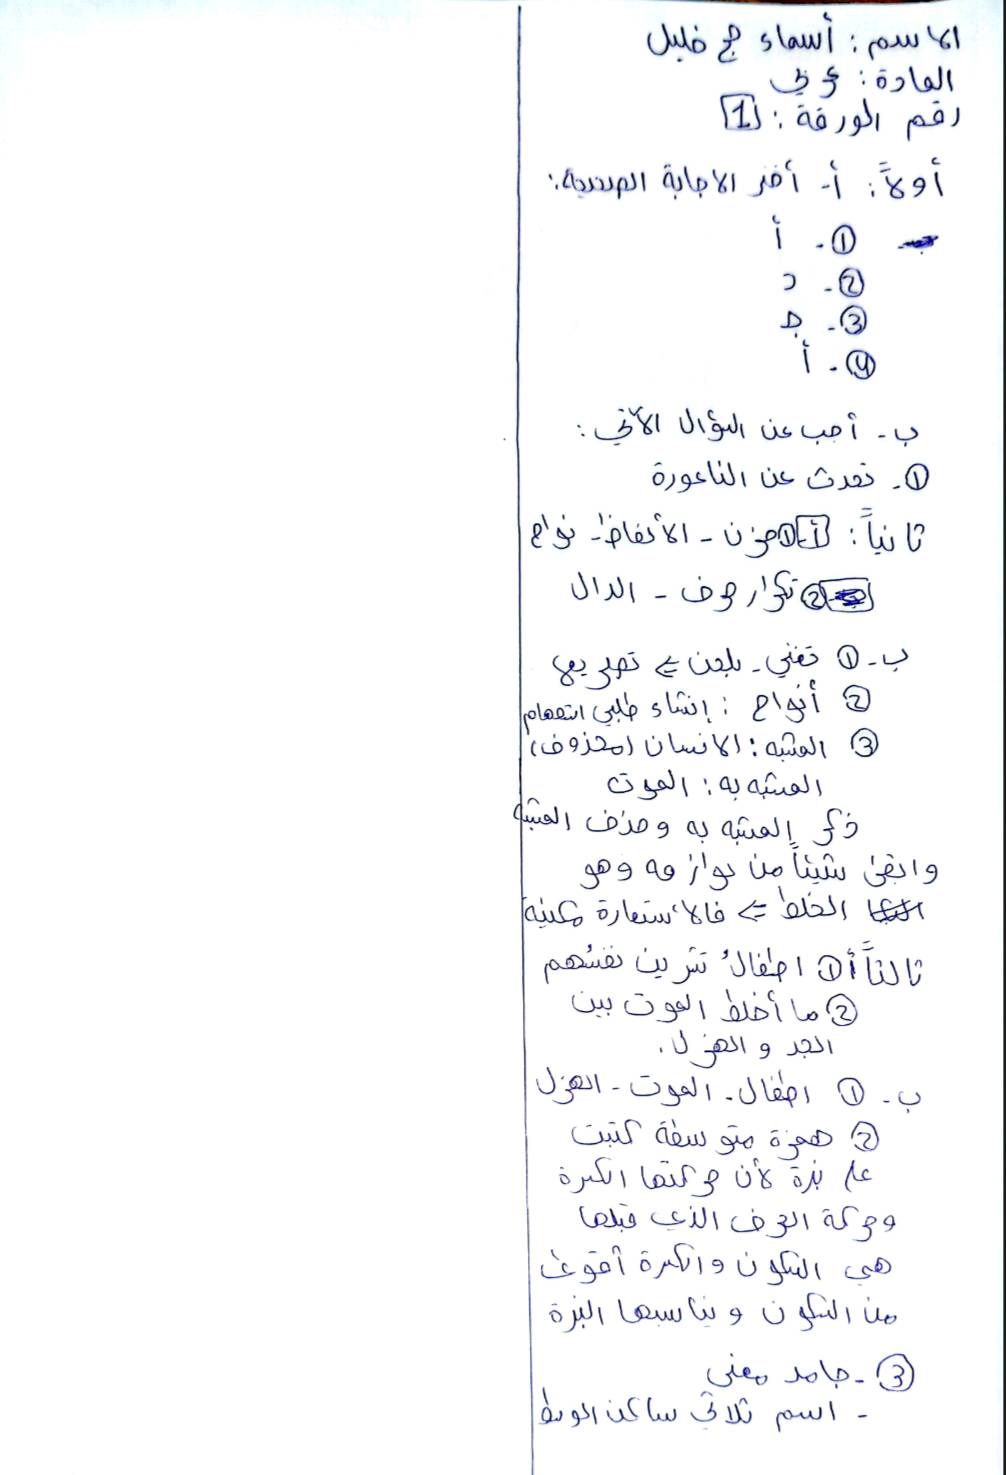 الاسم: أسماء حج خليل
المادة: عربي
رقم الورقة: [1]
أولاً: أ- أختر الاجابة الصحيحة:
①- أ
②- د
③- ج
④- أ
ب- أجب عن السؤال الآتي:
①- تحدث عن الناعورة
ثانياً: أ-① حزن - الأنقاض - نواح
② تكرار حرف - الدال
ب-① تغني - بلحن ⇐ تصريع
② أنواع: إنشاء طلبي استفهام
③ المشبه: الانسان (محذوف)
المشبه به: الموت
ذكر المشبه به وحذف المشبه
وابقى شيئاً من لوازمه وهو
الخلط ⇐ فالاستعارة مكنية
ثالثاً أ① اطفال تشرين نفسهم
② ما أخلط الموت بين
الجد و الهزل.
ب-① اطفال - الموت - الهزل
② همزة متوسطة كتبت
على نبرة لأن حركتها الكسرة
وحركة الحرف الذي قبلها
هي السكون والكسرة أقوى
من السكون و يناسبها النبرة
③- جامد معنى
- اسم ثلاثي ساكن الوسط